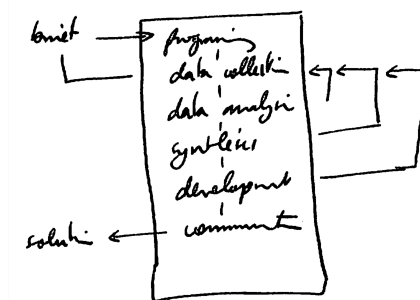 brief
programming
data collection
data analysis
synthesis
development
communication
solution